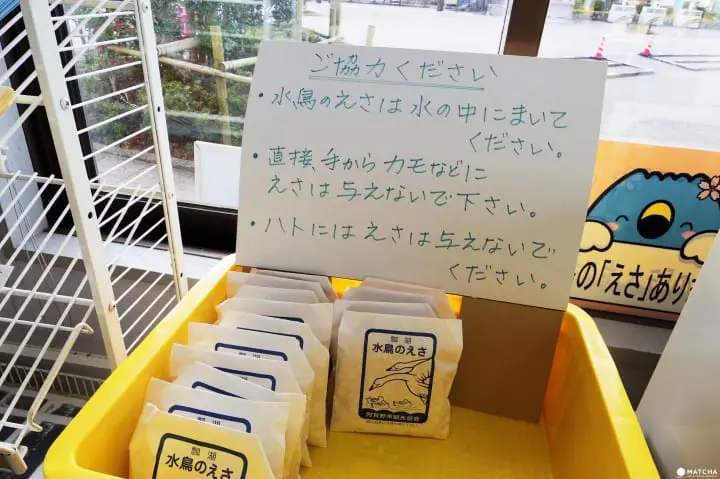 ご協力ください
・水鳥のえさは水の中にまいて
ください。
・直接、手からカモなどに
えさは与えないで下さい。
・ハトにはえさは与えないで
ください。
の「えさ」あり
瓢湖
水鳥のえさ
阿賀野市観光協会
瓢湖
水鳥のえさ
MATCHA